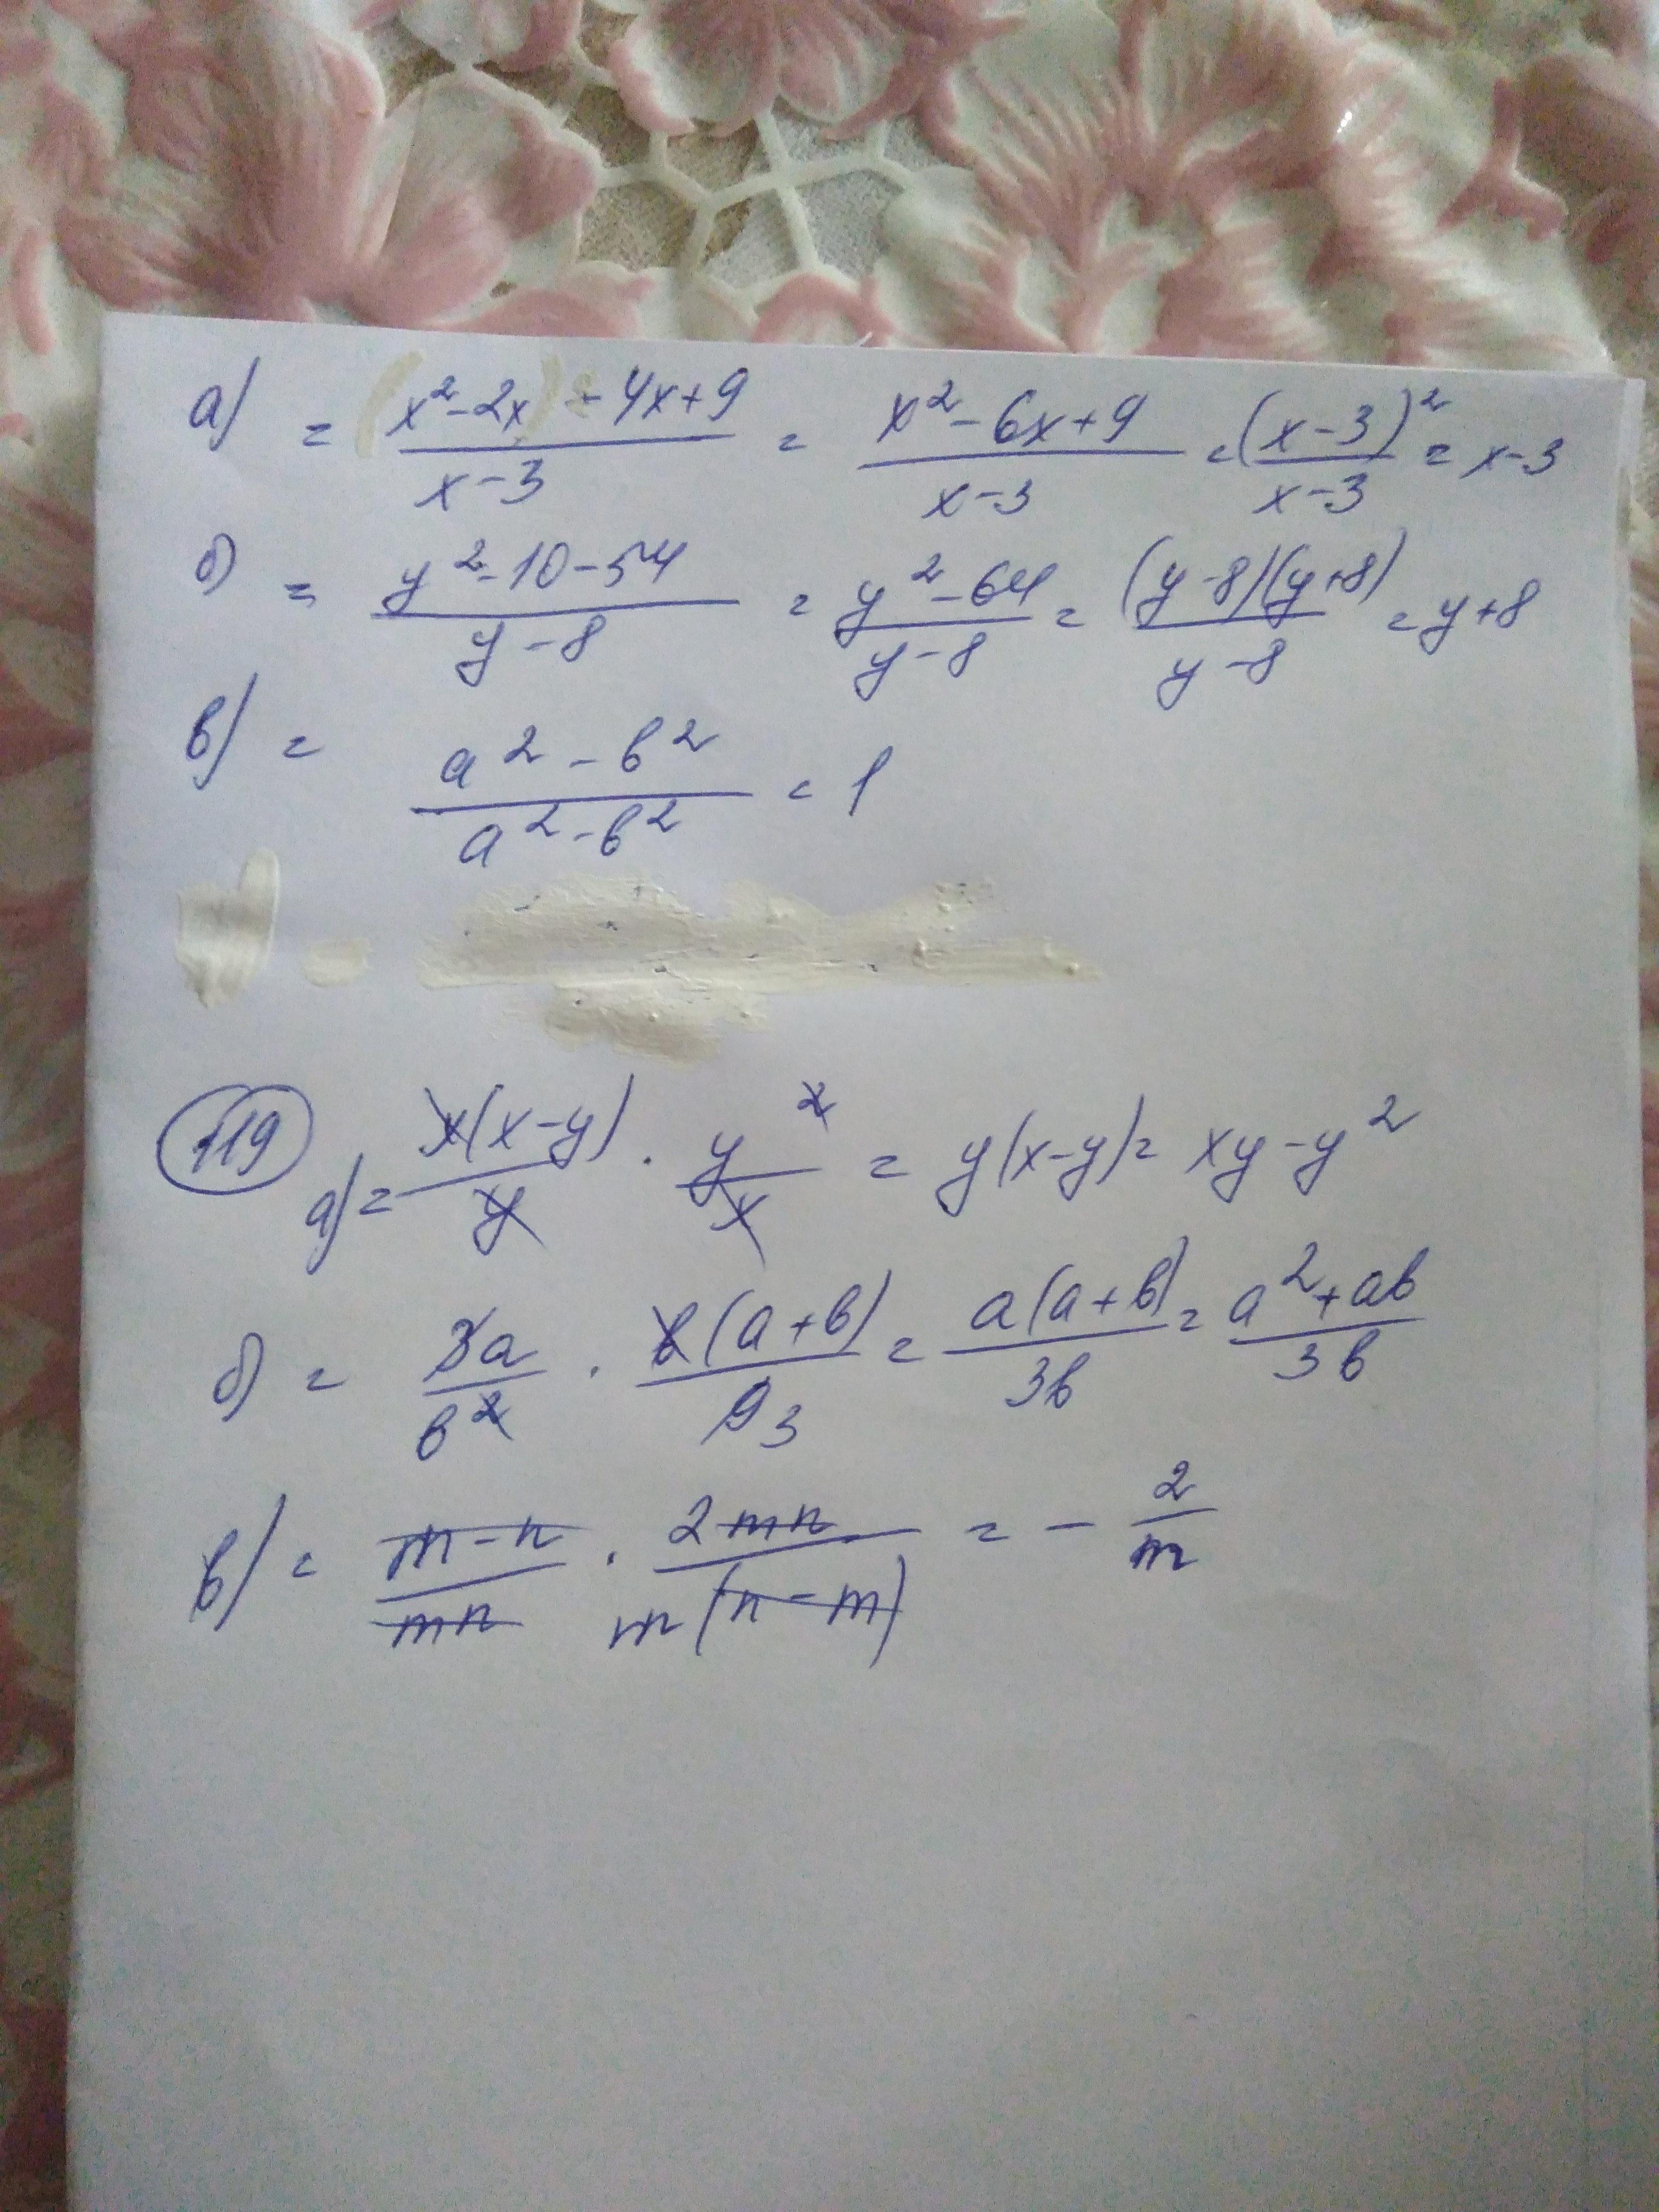 а) = (x² - 2x) - 4x + 9 / x - 3 = x² - 6x + 9 / x - 3 = (x - 3)² / x - 3 = x - 3
б) = y² - 10 - 54 / y - 8 = y² - 64 / y - 8 = (y - 8)(y + 8) / y - 8 = y + 8
в) = a² - b² / a² - b² = 1
119
а) = x(x - y) / y · y² / x = y(x - y) = xy - y²
б) = 3a / b² · b(a + b) / 9 3 = a(a + b) / 3b = a² + ab / 3b
в) = m - n / mn · 2mn / m(n - m) = - 2 / m